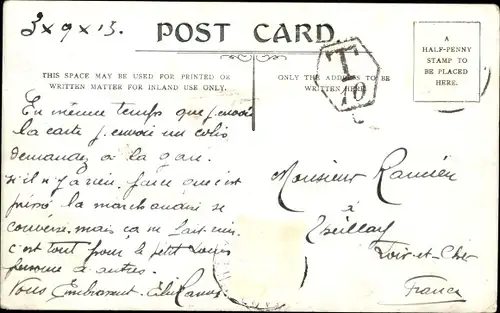 3 x 9 x 13.
POST CARD.
THIS SPACE MAY BE USED FOR PRINTED OR
WRITTEN MATTER FOR INLAND USE ONLY.
ONLY THE ADDRESS TO BE
WRITTEN HERE.
A
HALF-PENNY
STAMP TO
BE PLACED
HERE.
T
10
En même temps que j'envoie
la carte j'envoie un colis
demandez à la gare.
s'il n'y a rien, parce que c'est
pressé la marchandise se
conserve, mais ça ne fait rien.
c'est tout pour le petit Louis
personne à autres.
Vous Embrassent.
Monsieur Ramien
à
Loir-et-Cher
France